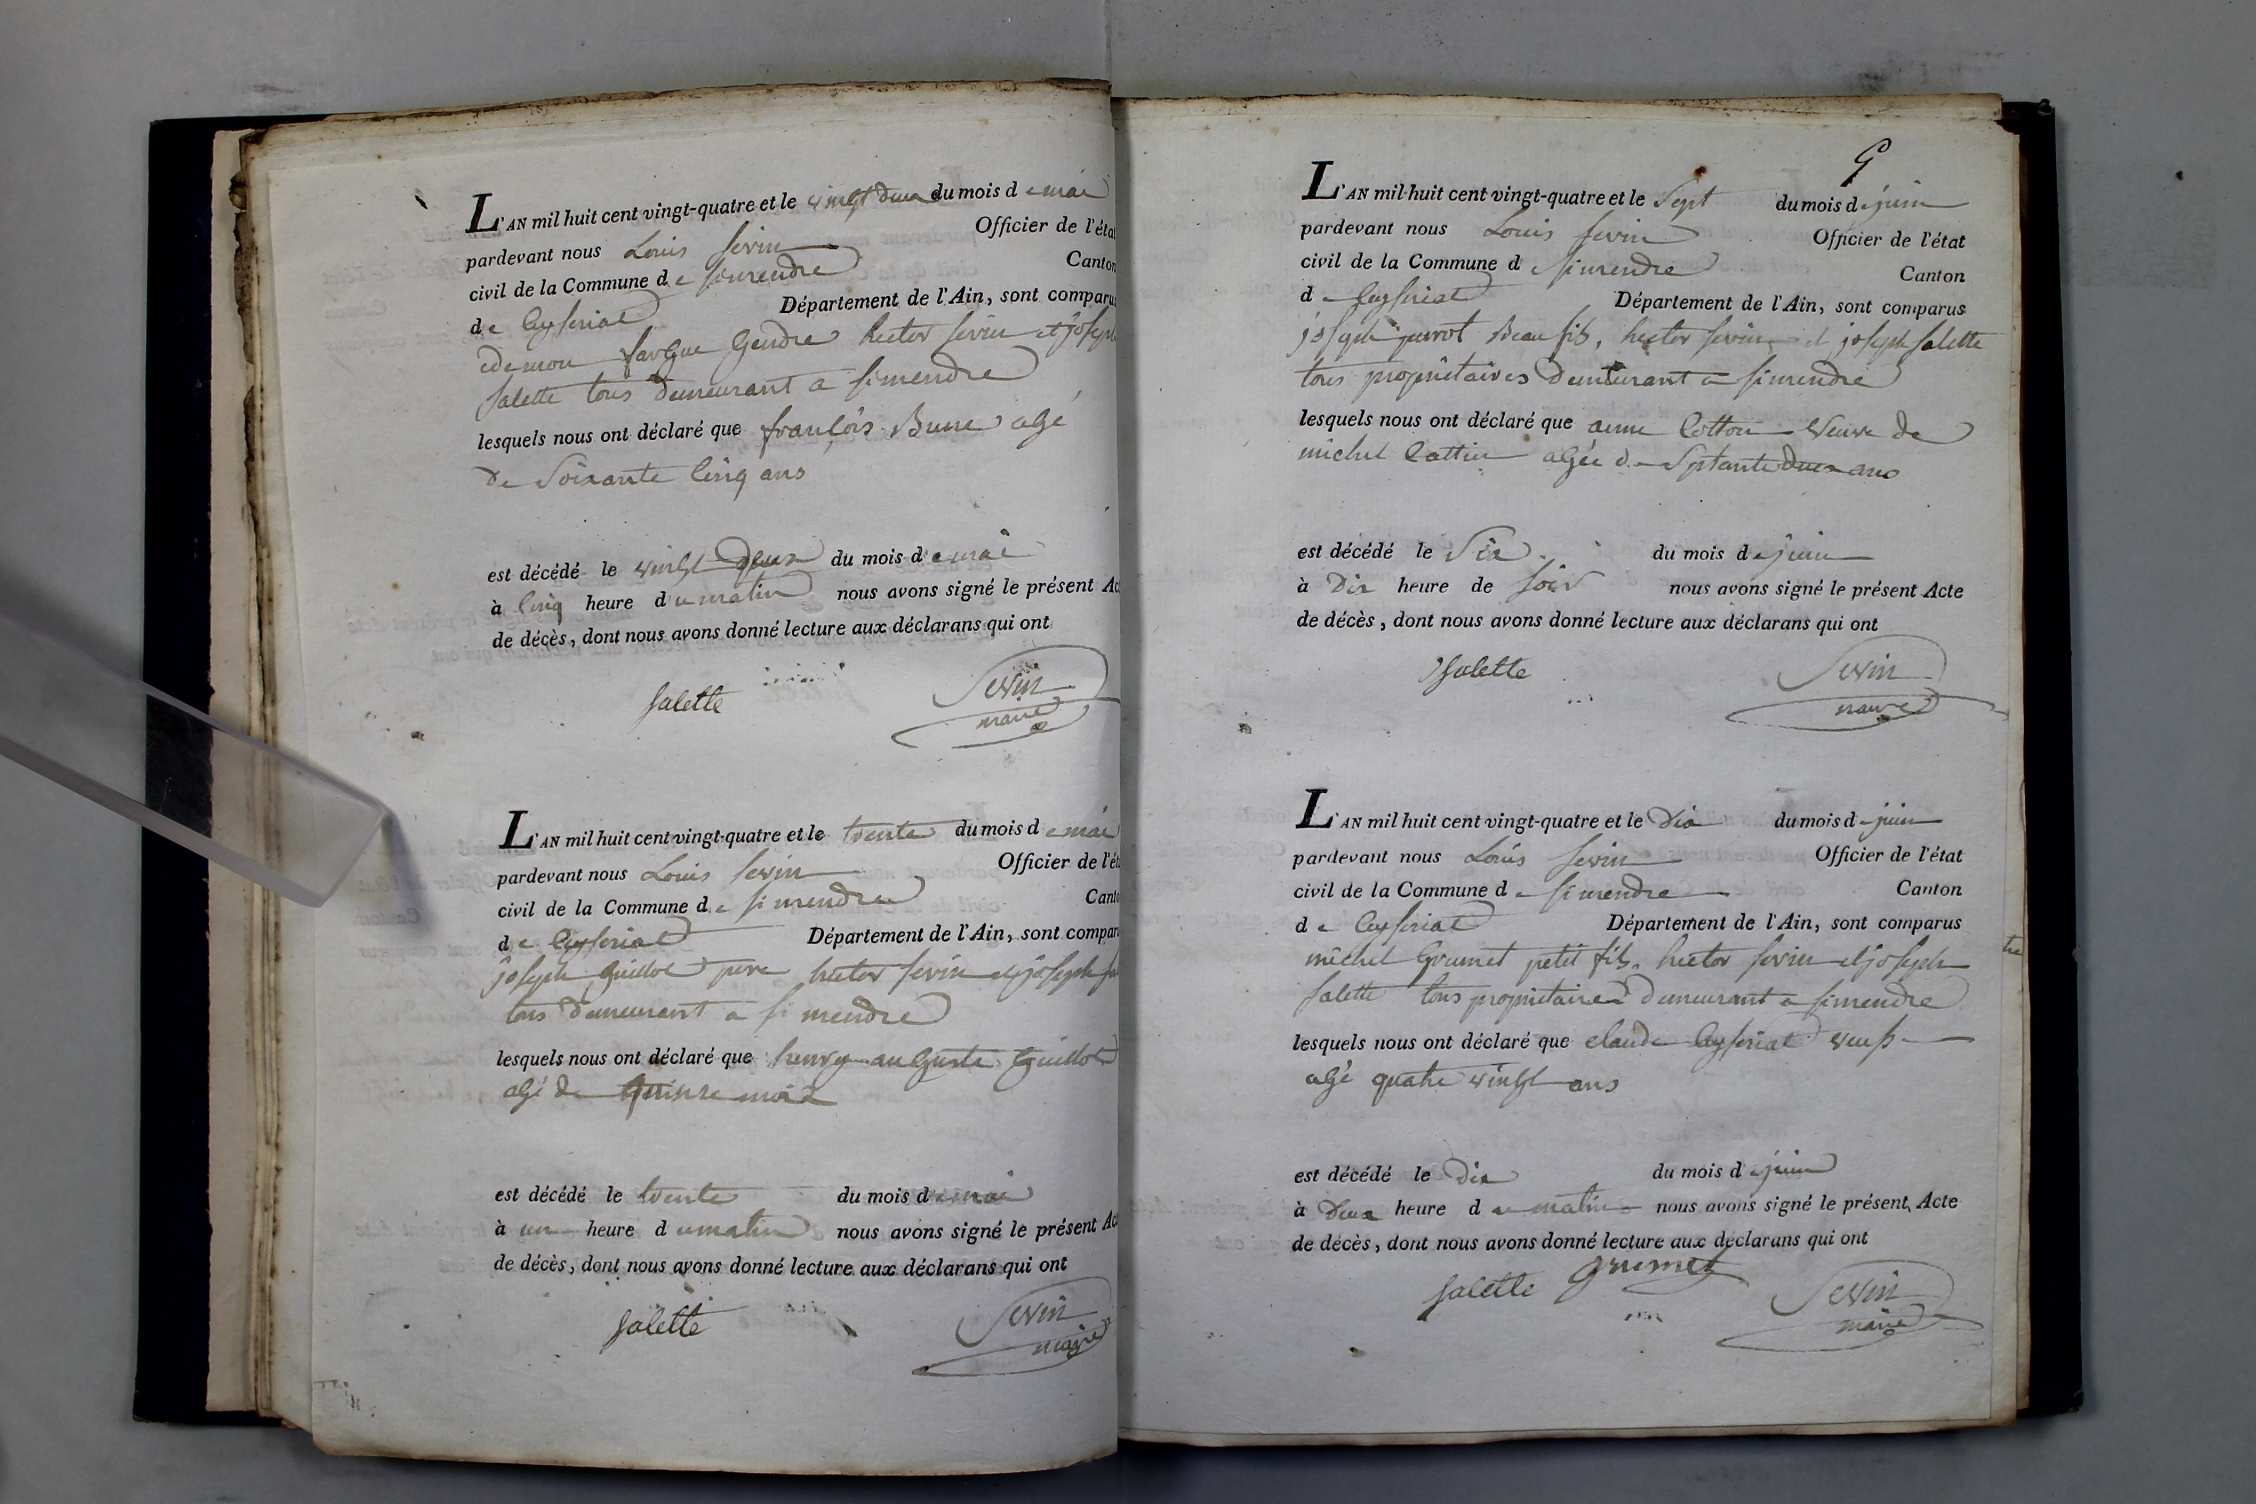 L'AN mil huit cent vingt-quatre et le vingt deux du mois de mai
pardevant nous Louis Sevin Officier de l'état
civil de la Commune de Simendre Canton
de Ceyseriat Département de l'Ain, sont comparus
edemon fargue Gendre hector Sevin et joseph
Salette tous demeurant a Simendre
lesquels nous ont déclaré que françois Bune agé
de Soixante Cinq ans
est décédé le vingt Deux du mois de mai
à Cinq heure du matin nous avons signé le présent Ac
de décès, dont nous avons donné lecture aux déclarans qui ont
Salette Sevin
maire
L'AN mil huit cent vingt-quatre et le trente du mois de mai
pardevant nous Louis Sevin Officier de l'ét
civil de la Commune de Simendre Canto
de Ceyseriat Département de l'Ain, sont compar
joseph Guillot pere hector Sevin et joseph Sa
tous demeurant a Simendre
lesquels nous ont déclaré que henry auguste Guillot
agé de quinze mois
est décédé le trente du mois de mai
à un heure du matin nous avons signé le présent Ac
de décès, dont nous avons donné lecture aux déclarans qui ont
Salette Sevin
maire
9
L'AN mil huit cent vingt-quatre et le Sept du mois de juin
pardevant nous Louis Sevin Officier de l'état
civil de la Commune de Simendre Canton
de Ceyseriat Département de l'Ain, sont comparus
joseph perrot Beau fils, hector Sevin et joseph Salette
tous propriétaires Demeurant a Simendre
lesquels nous ont déclaré que anne Cotton Veuve de
michel Cattin agée de Septante Deux ans
est décédé le Six du mois de juin
à Dix heure de Soir nous avons signé le présent Acte
de décès, dont nous avons donné lecture aux déclarans qui ont
Salette Sevin
maire
L'AN mil huit cent vingt-quatre et le Dix du mois de juin
pardevant nous Louis Sevin Officier de l'état
civil de la Commune de Simendre Canton
de Ceyseriat Département de l'Ain, sont comparus
michel Grumet petit fils, hector Sevin et joseph
Salette tous propriétaires Demeurant a Simendre
lesquels nous ont déclaré que claude Ceyseriat veuf
agé quatre vingt ans
est décédé le Dix du mois de juin
à Deux heure du matin nous avons signé le présent Acte
de décès, dont nous avons donné lecture aux déclarans qui ont
Salette Grumet Sevin
maire